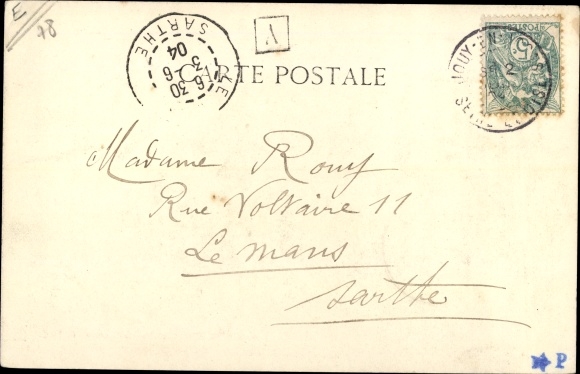 E
78
SARTHE
6 30
6-3
04
A
CARTE POSTALE
JOUY-EN
2
5
SEINE-ET-OISE
Madame Rouy
Rue Voltaire 11
Le mans
Sarthe
P